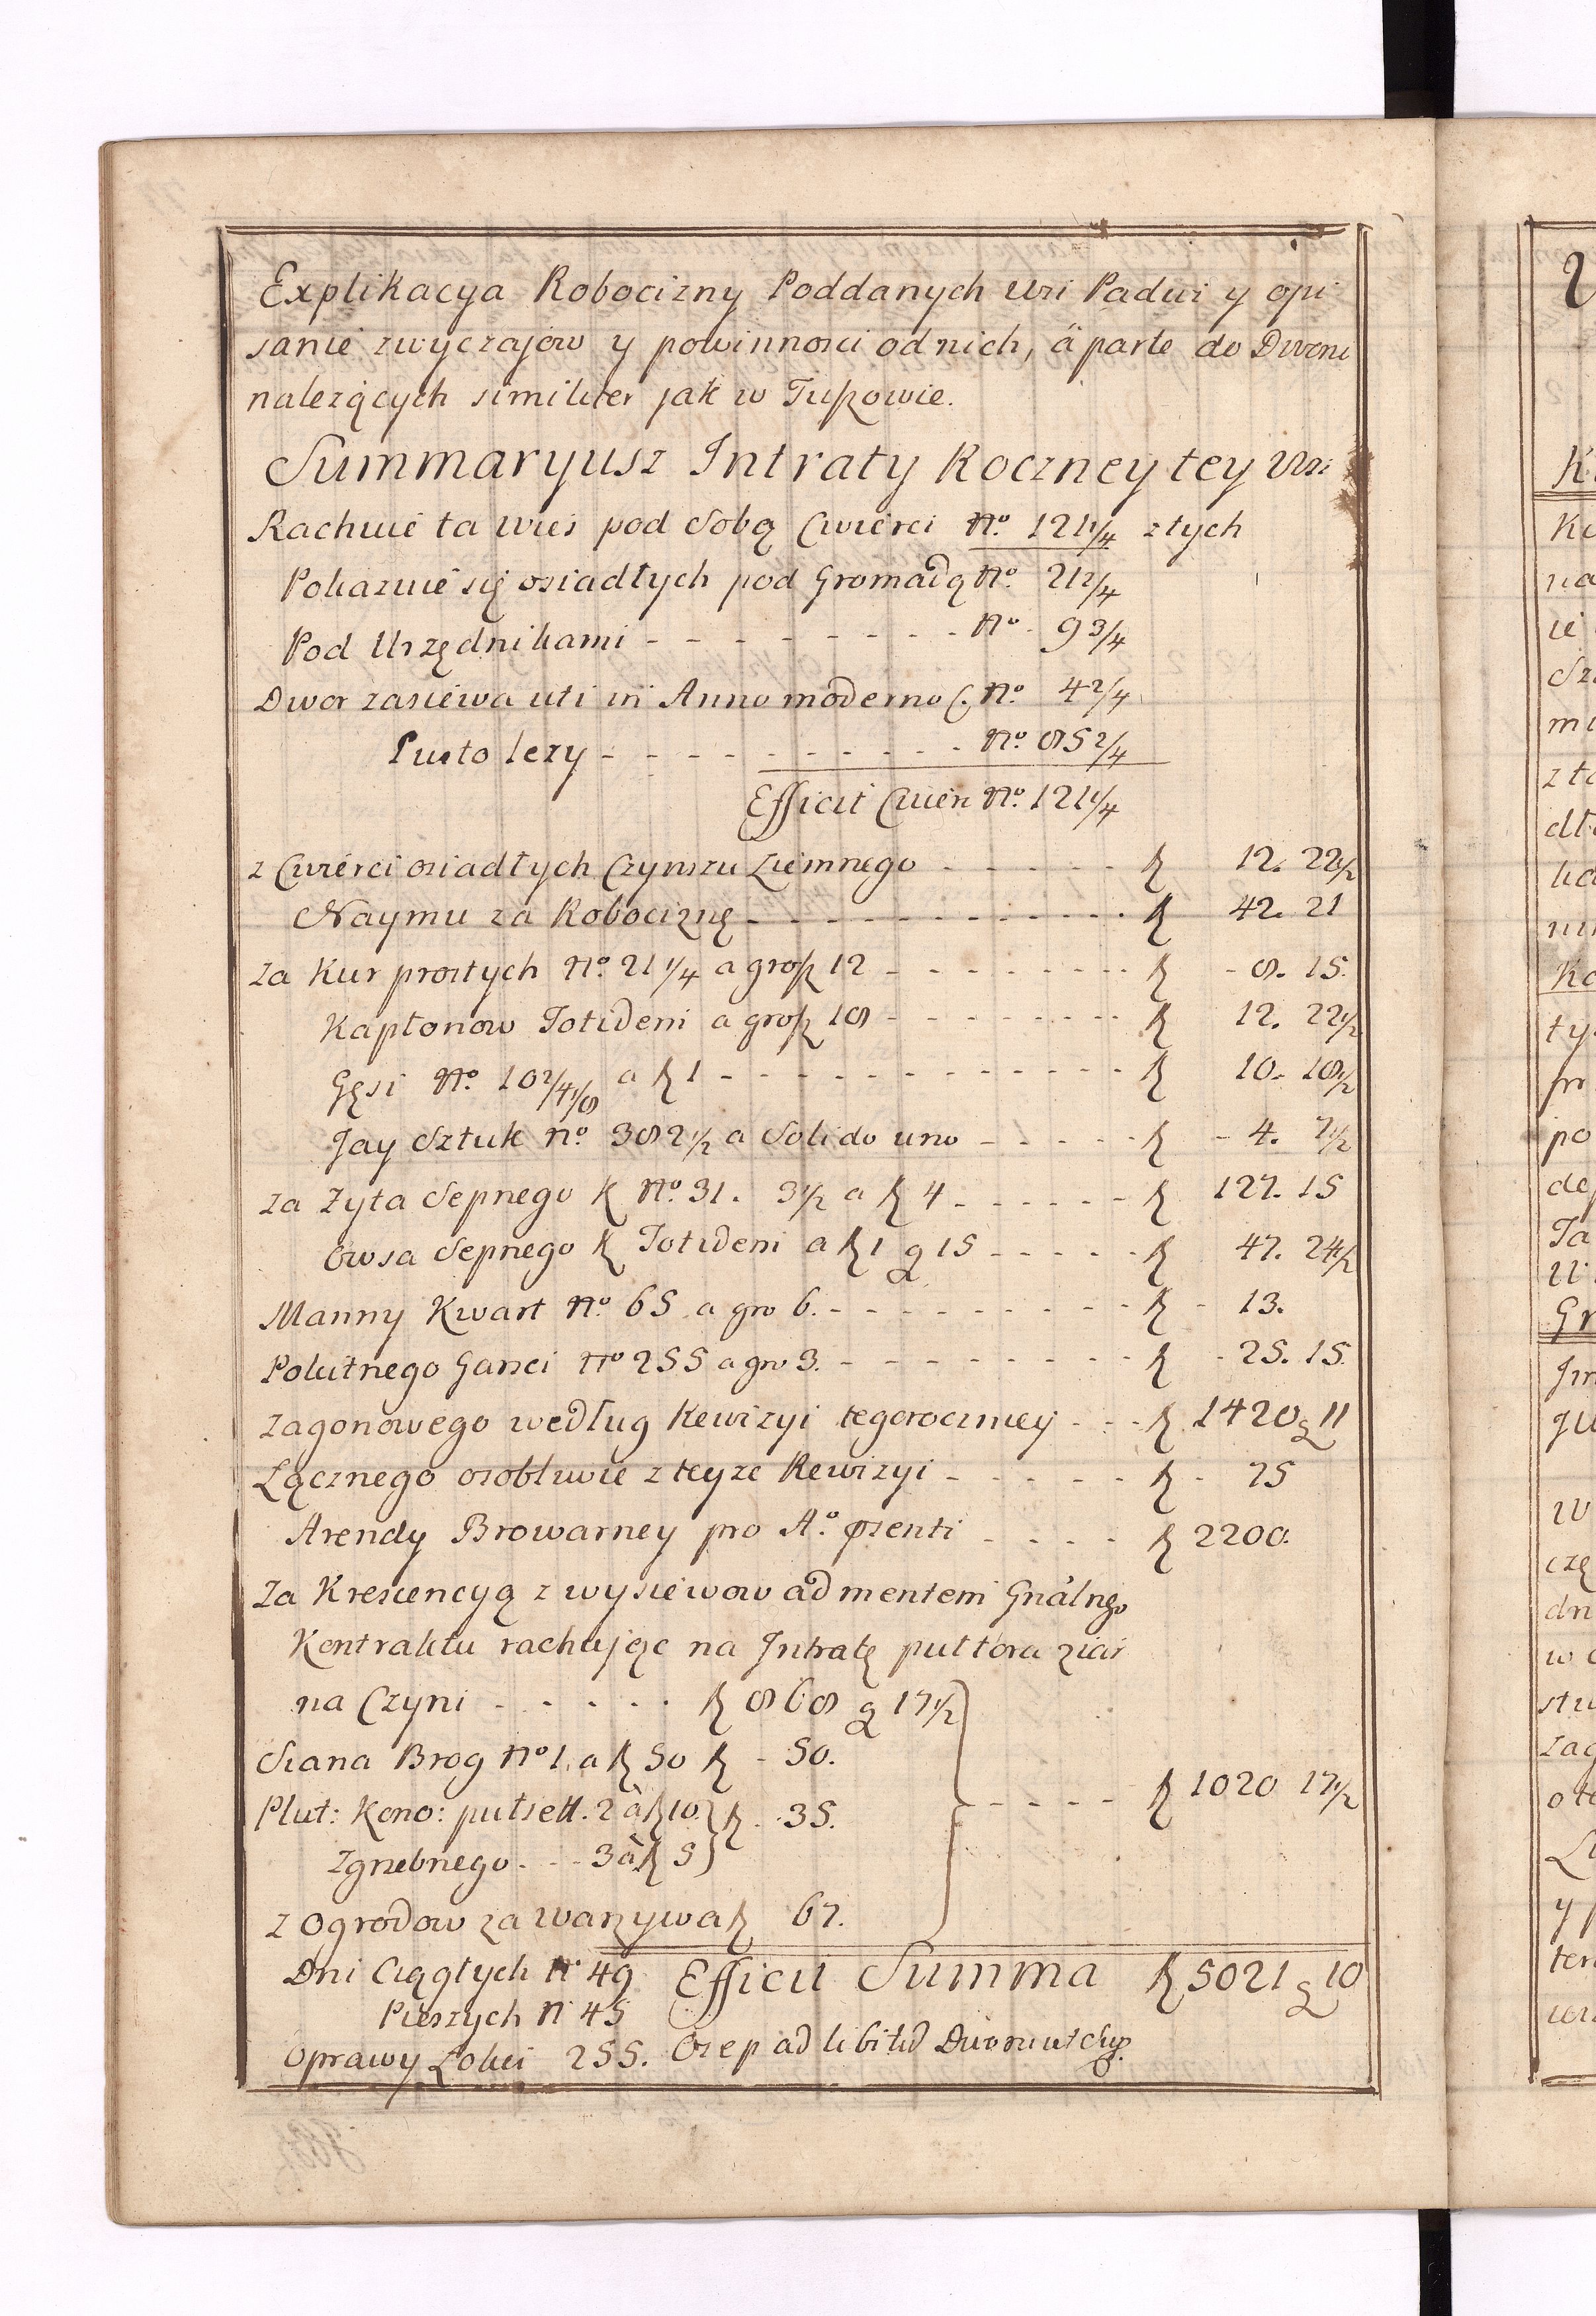 Explikacya Robocizny Poddanych wsi Padwi y opi
sanie zwyczajow y powinnosci od nich, á parte do Dworu
nalezących similiter jak w Tuszowie.
Summaryusz Intraty Roczney tey Wsi
Rachuie ta wies pod Sobą Cwierci No. 121 1/4 z tych
Pokazuie się osiadłych pod Gromadą No. 21 2/4
Pod Urzędnikami - - - - - - - - - No. 9 3/4
Dwor zasiewa uti in Anno moderno C. No. 4 2/4
Pusto lezy - - - - - - - - - - No. 85 2/4
Efficit Cwierci No. 121 1/4
z Cwierci osiadłych Czynszu Ziemnego - - - - - zł 12. 22 1/2
Naymu za Robociznę - - - - - - - - - - - zł 42. 21
za Kur prostych No. 21 1/4 a grosz 12 - - - - - - - - zł - 8. 15.
Kapłonow Totidem a grosz 18 - - - - - - - - zł 12. 22 1/2
Gęsi No. 10 2/4 1/8 a zł 1 - - - - - - - - - - - - zł 10. 18 1/2
Jay Sztuk no. 382 1/2 a Solido uno - - - - - zł - 4. 7 1/2
za Zyta Sepnego K No. 31. 3 1/2 a zł 4 - - - - - - zł 127. 15
Owsa Sepnego K Totidem a zł 1 g 15 - - - - - zł 47. 24 1/2
Manny Kwart No. 65 a gro 6. - - - - - - - - - - zł - 13.
Polutnego Garsci No 255 a gro 3. - - - - - - - - - zł - 25. 15.
Zagonowego według Rewizyi tegoroczney - - - zł 1420 g 11
Łącznego osobliwie z teyze Rewizyi - - - - - zł - 75
Arendy Browarney pro Ao. psenti - - - - zł 2200.
Za Krescencyą z wysiewow ad mentem Gnálnego
Kontraktu rachując na Intratę pułtora ziar
na Czyni - - - - - zł 868 g 17 1/2
Siana Brog No 1. a zł 50 zł - 50.
Płut: Kono: pułsett. 2 à zł 10 zł - 35. - - - - - zł 1020 17 1/2
Zgrzebnego - - - 3 à zł 5
z Ogrodow za Warzywa zł 67.
Dni Ciągłych N 49 Efficit Summa zł 5021 g 10
Pieszych N 45
Oprawy Łokci 255. Osep ad libitū Dworu ut Sup.